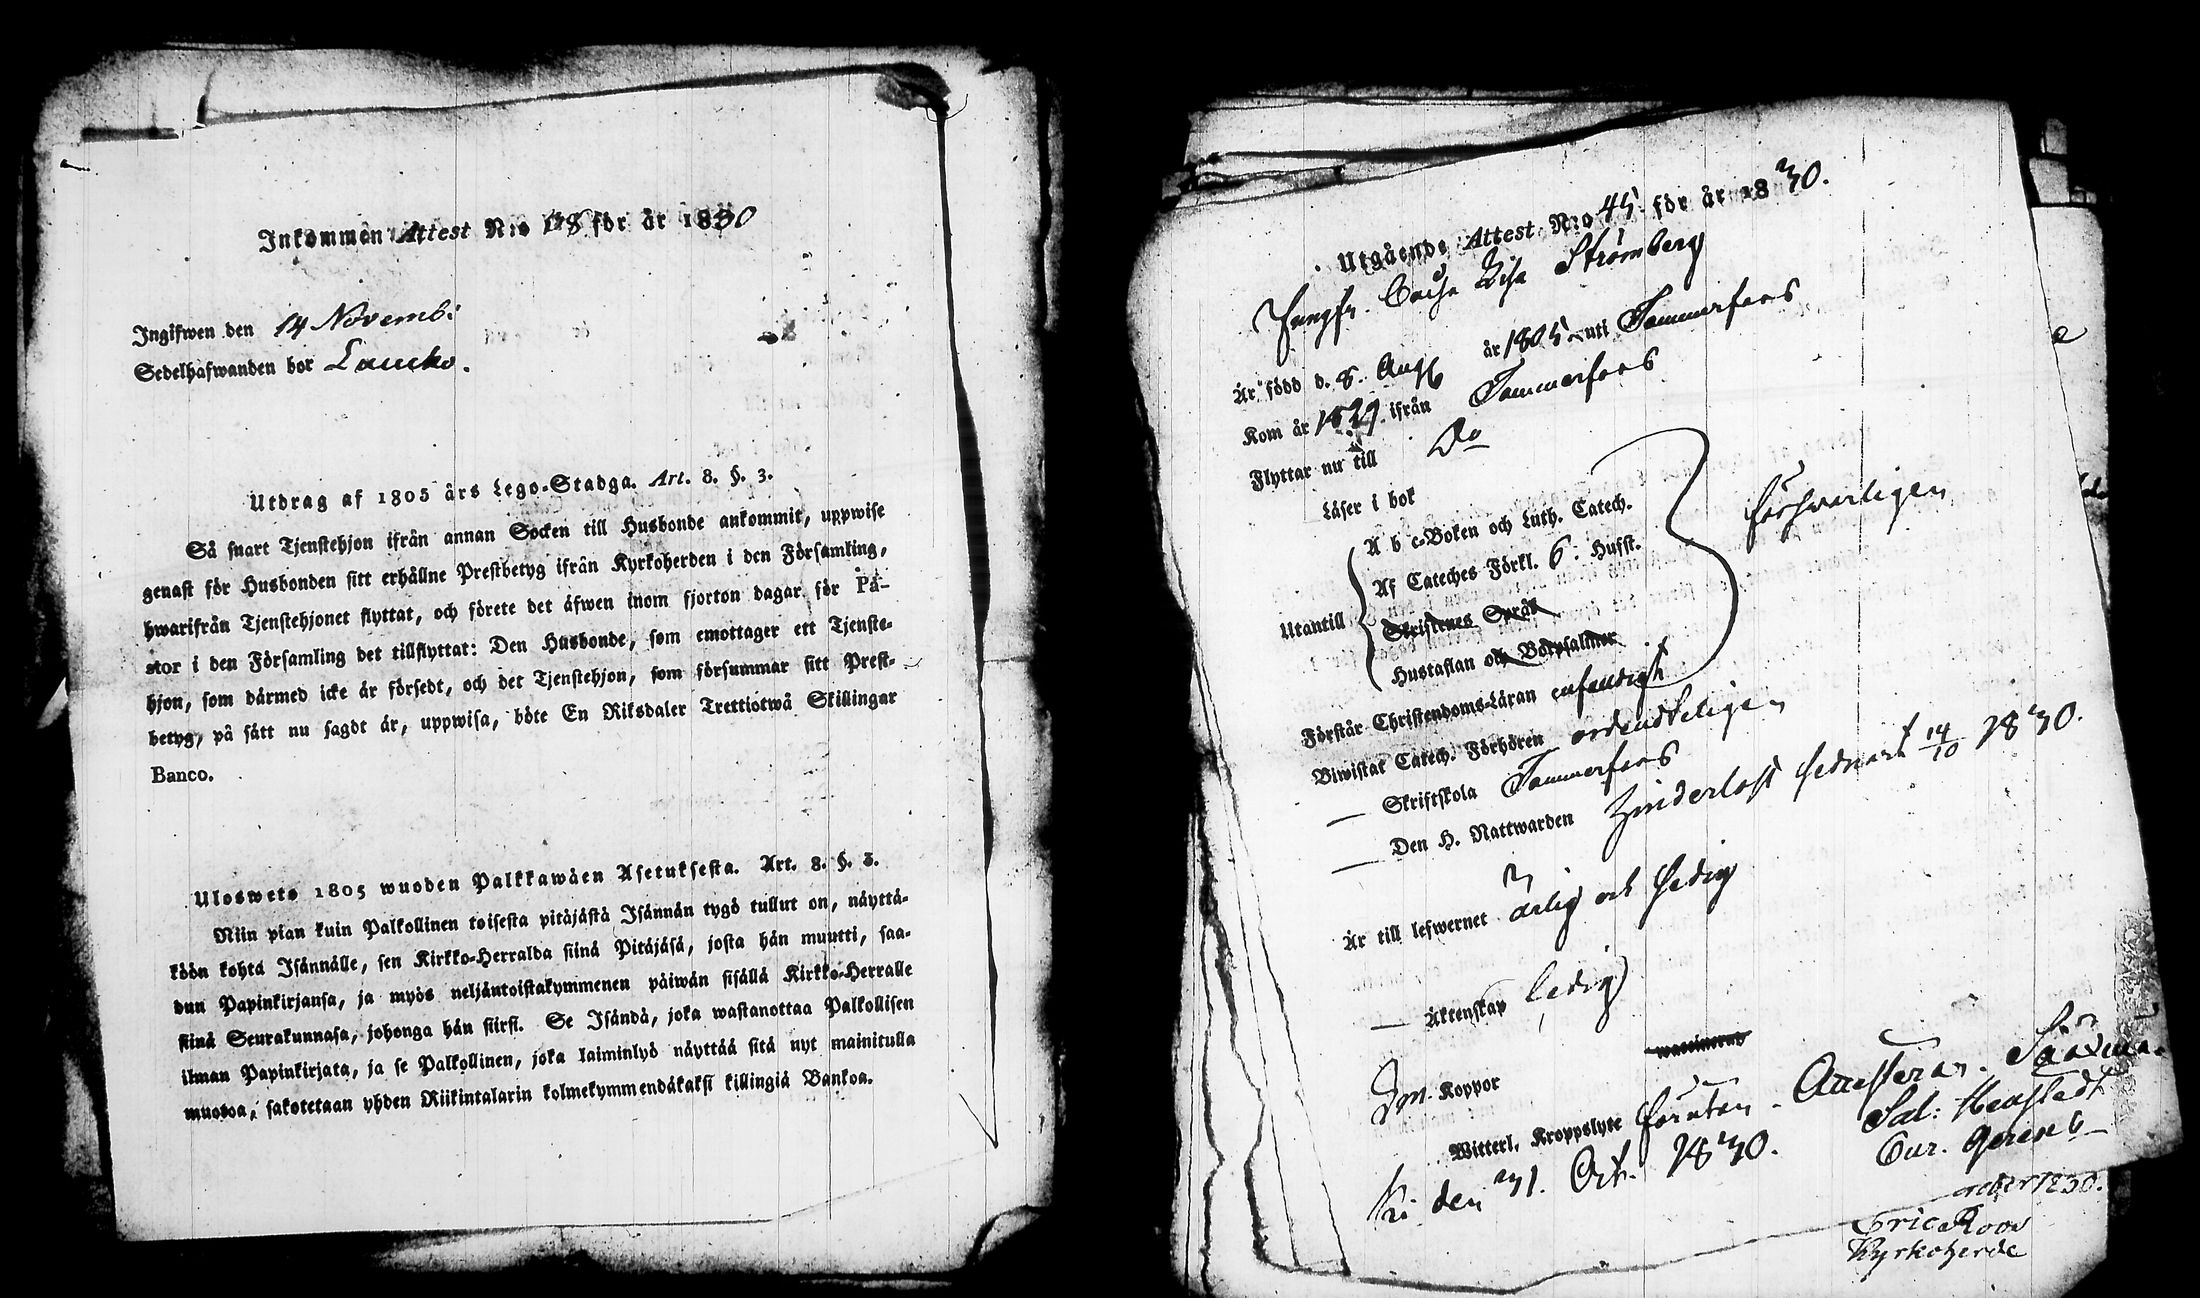 Inkommen Attest N:o 68 för år 1830
Ingifwen den 14 Novemb:
Sedelhafwanden bor Laucko.
Utdrag af 1805 års Lego-Stadga. Art. 8. §. 3.
Så snart Tjenstehjon ifrån annan Socken till Husbonde ankommit, uppwise
genast för Husbonden sitt erhållne Prestbetyg ifrån Kyrkoherden i den Församling,
hwarifrån Tjenstehjonet flyttat, och förete det äfwen inom fjorton dagar för Pa-
stor i den Församling det tillflyttat: Den Husbonde, som emottager ett Tjenste-
hjon, som därmed icke är försedt, och det Tjenstehjon, som försummar sitt Prest-
betyg, på sätt nu sagdt är, uppwisa, böte En Riksdaler Trettiotwå Skillingar
Banco.
Ulosweto 1805 wuoden Palkkawäen Asetuksesta. Art. 8. §. 3.
Niin pian kuin Palkollinen toisesta pitäjästä Isännän tygö tullut on, näyttä-
köön kohta Isännälle, sen Kirkko-Herralda siinä Pitäjäsä, josta hän muutti, saa-
dun Papinkirjansa, ja myös neljäntoistakymmenen päiwän sisällä Kirkko-Herralle
siinä Seurakunnasa, johonga hän siirsi. Se Isändä, joka wastanottaa Palkollisen
ilman Papinkirjata, ja se Palkollinen, joka laiminlyö näyttää sitä nyt mainitulla
muotoa, sakotetaan yhden Riikintalarin kolmekymmendäkaksi killingiä Bankoa.
Utgående Attest N:o 45 för år 1830.
Jungfr. Cajsa Lisa Strömberg
Är född d. 8. Aug år 1805 uti Tammerfors
Kom år 1829. ifrån Tammerfors
Flyttar nu till Do
Läser i bok
Utantill
A b c-Boken och Luth. Catech.
Af Cateches Förkl. 6. Husst.
Skriftenes Språk
Hustaflan och Botpsalmer
försvarligen
Förstår Christendoms-Läran enfaldigt
Biwistat Catech. Förhören ordenteligen
— Skriftskola Tammerfors
— Den H. Nattwarden hinderlöst sednast 14/10 1830.
Är till lefwernet ärlig och sedig
— Äktenskap ledig
Om. Koppor waccinerad
Witterl. Kroppslyte förutan
den 31. Oct. 1830.
Sal:
Cur. gerens
Eric Roos
Kyrkoherde